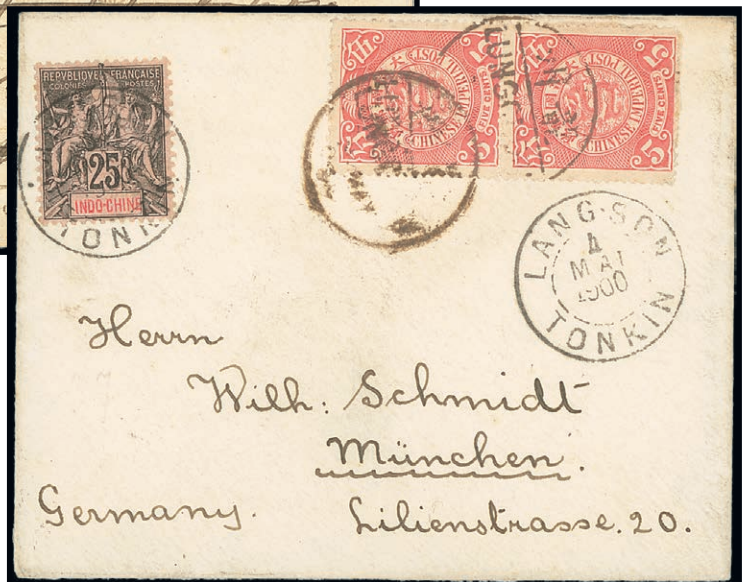 REPVBLIQVE FRANÇAISE
COLONIES POSTES
25
INDO-CHINE
TONK
CHINESE IMPERIAL POST
5
5
CHINESE IMPERIAL POST
5
5
LUNGC
LANG-SON
4
MAI
1900
TONKIN
Herrn
Wilh: Schmidt
München.
Germany. Lilienstrasse. 20.